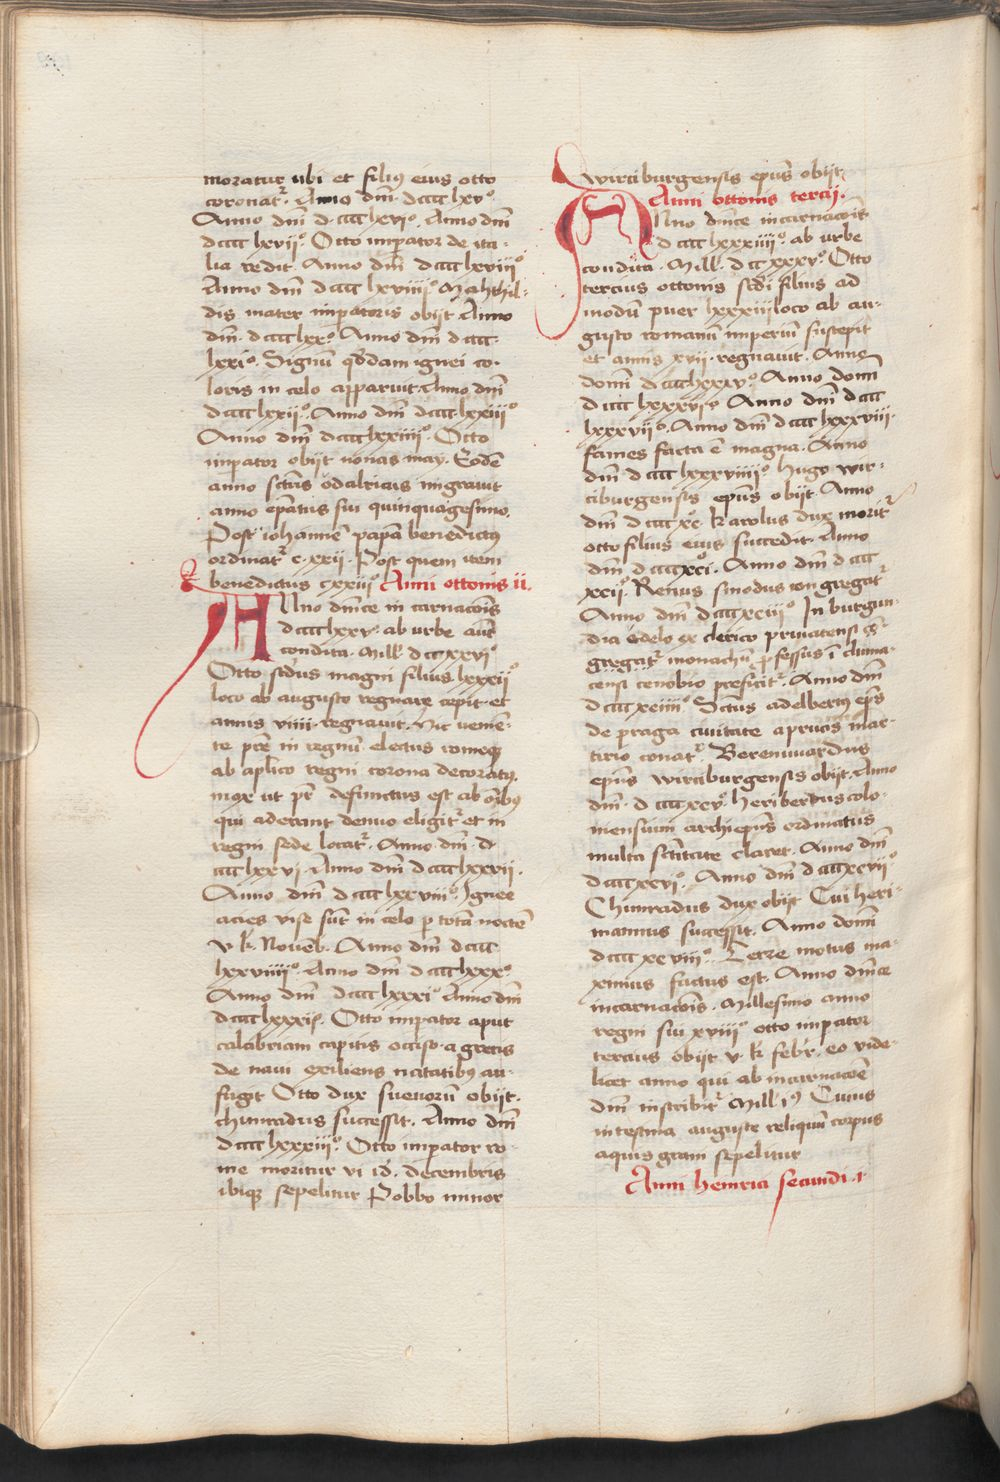 moratur ubi et filiꝰ eius otto
coronatʳ. Anno dn̄i dcccc lxvº.
Anno dn̄i d.cccc lxviº. Anno dn̄i
dcccc lxviiº. Otto impator de ita-
lia redit. Anno dn̄i dcccc lxviiiº
Anno dn̄i dcccc lxviiiiº. Mahthil-
dis mater impatoris obijt. Anno
dn̄i. dcccc lxxº. Anno dn̄i dcccc
lxxiº. Signū qddam ignei co-
loris in celo apparuit. Anno dn̄i
dcccc lxxiiº. Anno dn̄i dcccc lxxiiiº
Anno dn̄i dcccc lxxiiiiº. Otto
impator obijt nonas may. Eodē
anno sct̄us odalricus migrauit
anno ep̄atus sui quinquagesimo.
Post iohannē papā benedictꝰ
ordinatʳ c.xxii. Post quem item
benedictus cxxiiiº Anni ottonis ii.
Anno dn̄ice in carnacōis
dcccc lxxv. ab urbe aūt
condita. Mill'. dcc xxviº
Otto scd̄us magni filius lxxxiiº
loco ab augusto regnare cepit. et
annis viiii. regnauit. Hic uemē-
te pr̄e in regnū electus romeqꝫ
ab ap̄lico regni corona decoratꝰ.
mox ut pr̄ defunctus est ab oībꝰ
qui aderant denuo eligitʳ et in
regni sede locatʳ. Anno dn̄i. d
cccc lxxvi. Anno dn̄i dcccc lxxvii.
Anno dn̄i dcccc lxxviiiº. Ignee
acies vise sūt in celo p totā noctē
v. k̄. Noueb. Anno dn̄i dcccc
lxxviiiiº. Anno dn̄i dcccc lxxxº
Anno dn̄i dcccc lxxxiº Anno dn̄i
dcccc lxxxiº. Otto impator aput
calabriam capitis occiso a grecis
de naui exiliens ncitatibꝰ au-
fugit Otto dux sueuorū obijt.
chunradus successit. Anno dn̄i
dcccc lxxxiiiº. Otto impator ro-
me moritur vi id'. decembris
ibiqꝫ sepelitur Pobbo minor
wirciburgensis ep̄us obijt
Anni ottonis tercij.
Anno dn̄ice incarnacōis
dcccc lxxxiiiiº. ab urbe
condita. Mill'. dcc xxxvº. Otto
tercius ottonis scd̄i filius ad
modū puer lxxxiii loco ab au-
gusto romanū imperiū suscepit
et annis xvii. regnauit. Anno
domī dcccc lxxxvº. Anno domī
dcccc lxxxviº Anno dn̄i dcccc
lxxxviiº. Anno dn̄i dcccc lxxxviii.
fames facta ē magna. Anno
dn̄i dcccc lxxxviiiiº. Hugo wir-
ciburgensis ep̄us obijt. Anno
dn̄i dcccc xc. karolus dux moritʳ
otto filius eius succedit. Anno
dn̄i dcccc xci. Anno dn̄i dcccc
xciiº. Remis sinodus congregatʳ
Anno dn̄i dcccc xciiiº In burgun-
dia odelo ex clerico priuatensi cō-
gregatʳ. monachū pfessus ī clunia-
censi cenobio preficitʳ. Anno dn̄i
dcccc xciiii. Sctus adelbertus ep̄s
de praga ciuitate aprucis mar-
tirio conatʳ. Berenwardus
ep̄us wirciburgensis obijt. Anno
dn̄i. dcccc xcvº. heribertus colo-
niensium archiep̄us ordinatus
multa sc̄itate claret. Anno dn̄i
dcccc xcviº. Anno dn̄i dcccc xcviiº
Chunradus dux obijt Cui heri-
mannus successit. Anno domī
dcccc xcviiiº. Terre motus ma-
ximus factus est. Anno dn̄ice
incarnacōis. Millesimo anno
regni sui xviiiº otto impator
tercius obijt v. k̄ febr̄. eo vide-
licet anno qui ab incarnacōe
dn̄i inscribitʳ Mill' iº Cuius
intestina auguste reliquū corpus
aquis grani sepelitur
Anni heinrici secundi.i